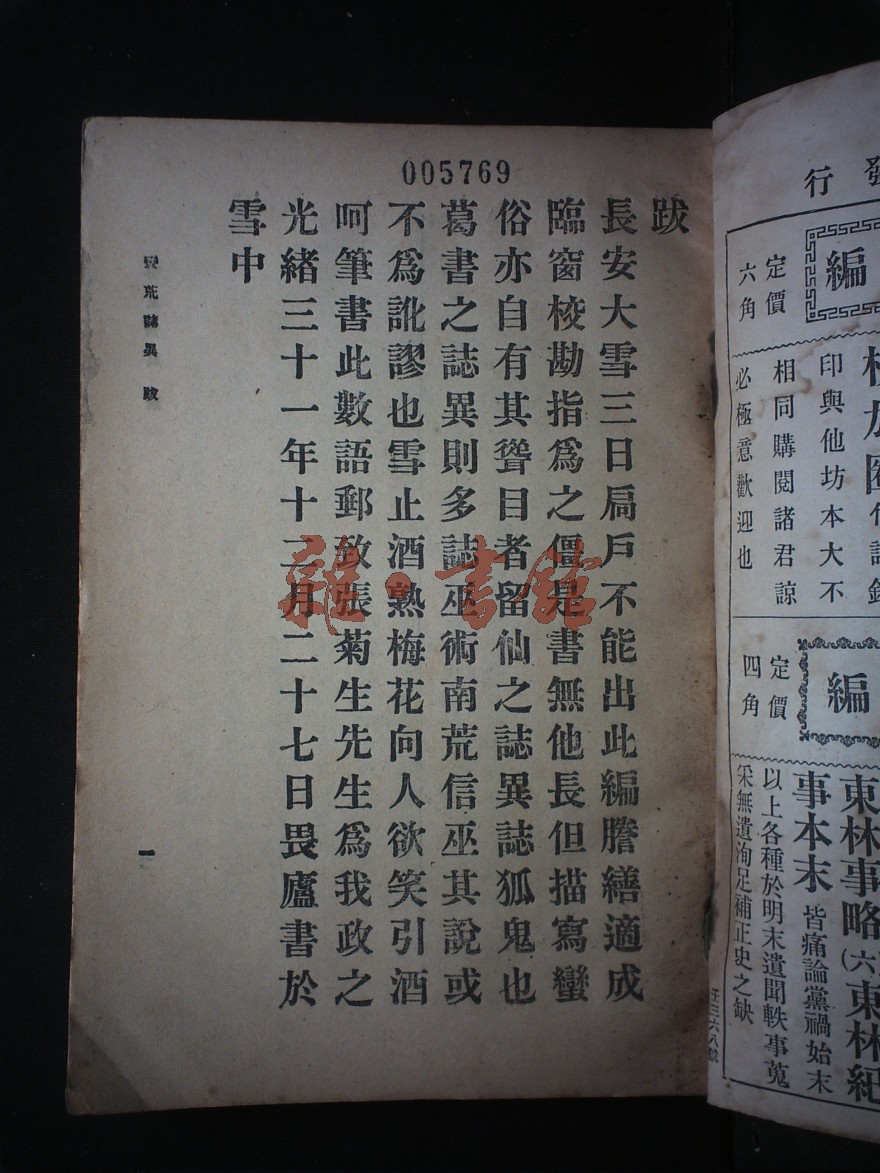 005769
跋
長安大雪三日扃戶不能出此編謄繕適成
臨窗校勘指爲之僵是書無他長但描寫蠻
俗亦自有其聳目者留仙之誌異誌狐鬼也
葛書之誌異則多誌巫術南荒信巫其說或
不爲訛謬也雪止酒熟梅花向人欲笑引酒
呵筆書此數語郵致張菊生先生爲我政之
光緒三十一年十二月二十七日畏廬書於
雪中
蠻荒誌異 跋
一
發行
編
定價
六角
印與他坊本大不
相同購閱諸君諒
必極意歡迎也
編
定價
四角
東林事略(六)東林紀
事本末 皆痛論黨禍始末
以上各種於明末遺聞軼事蒐
采無遺洵足補正史之缺
雜·書館